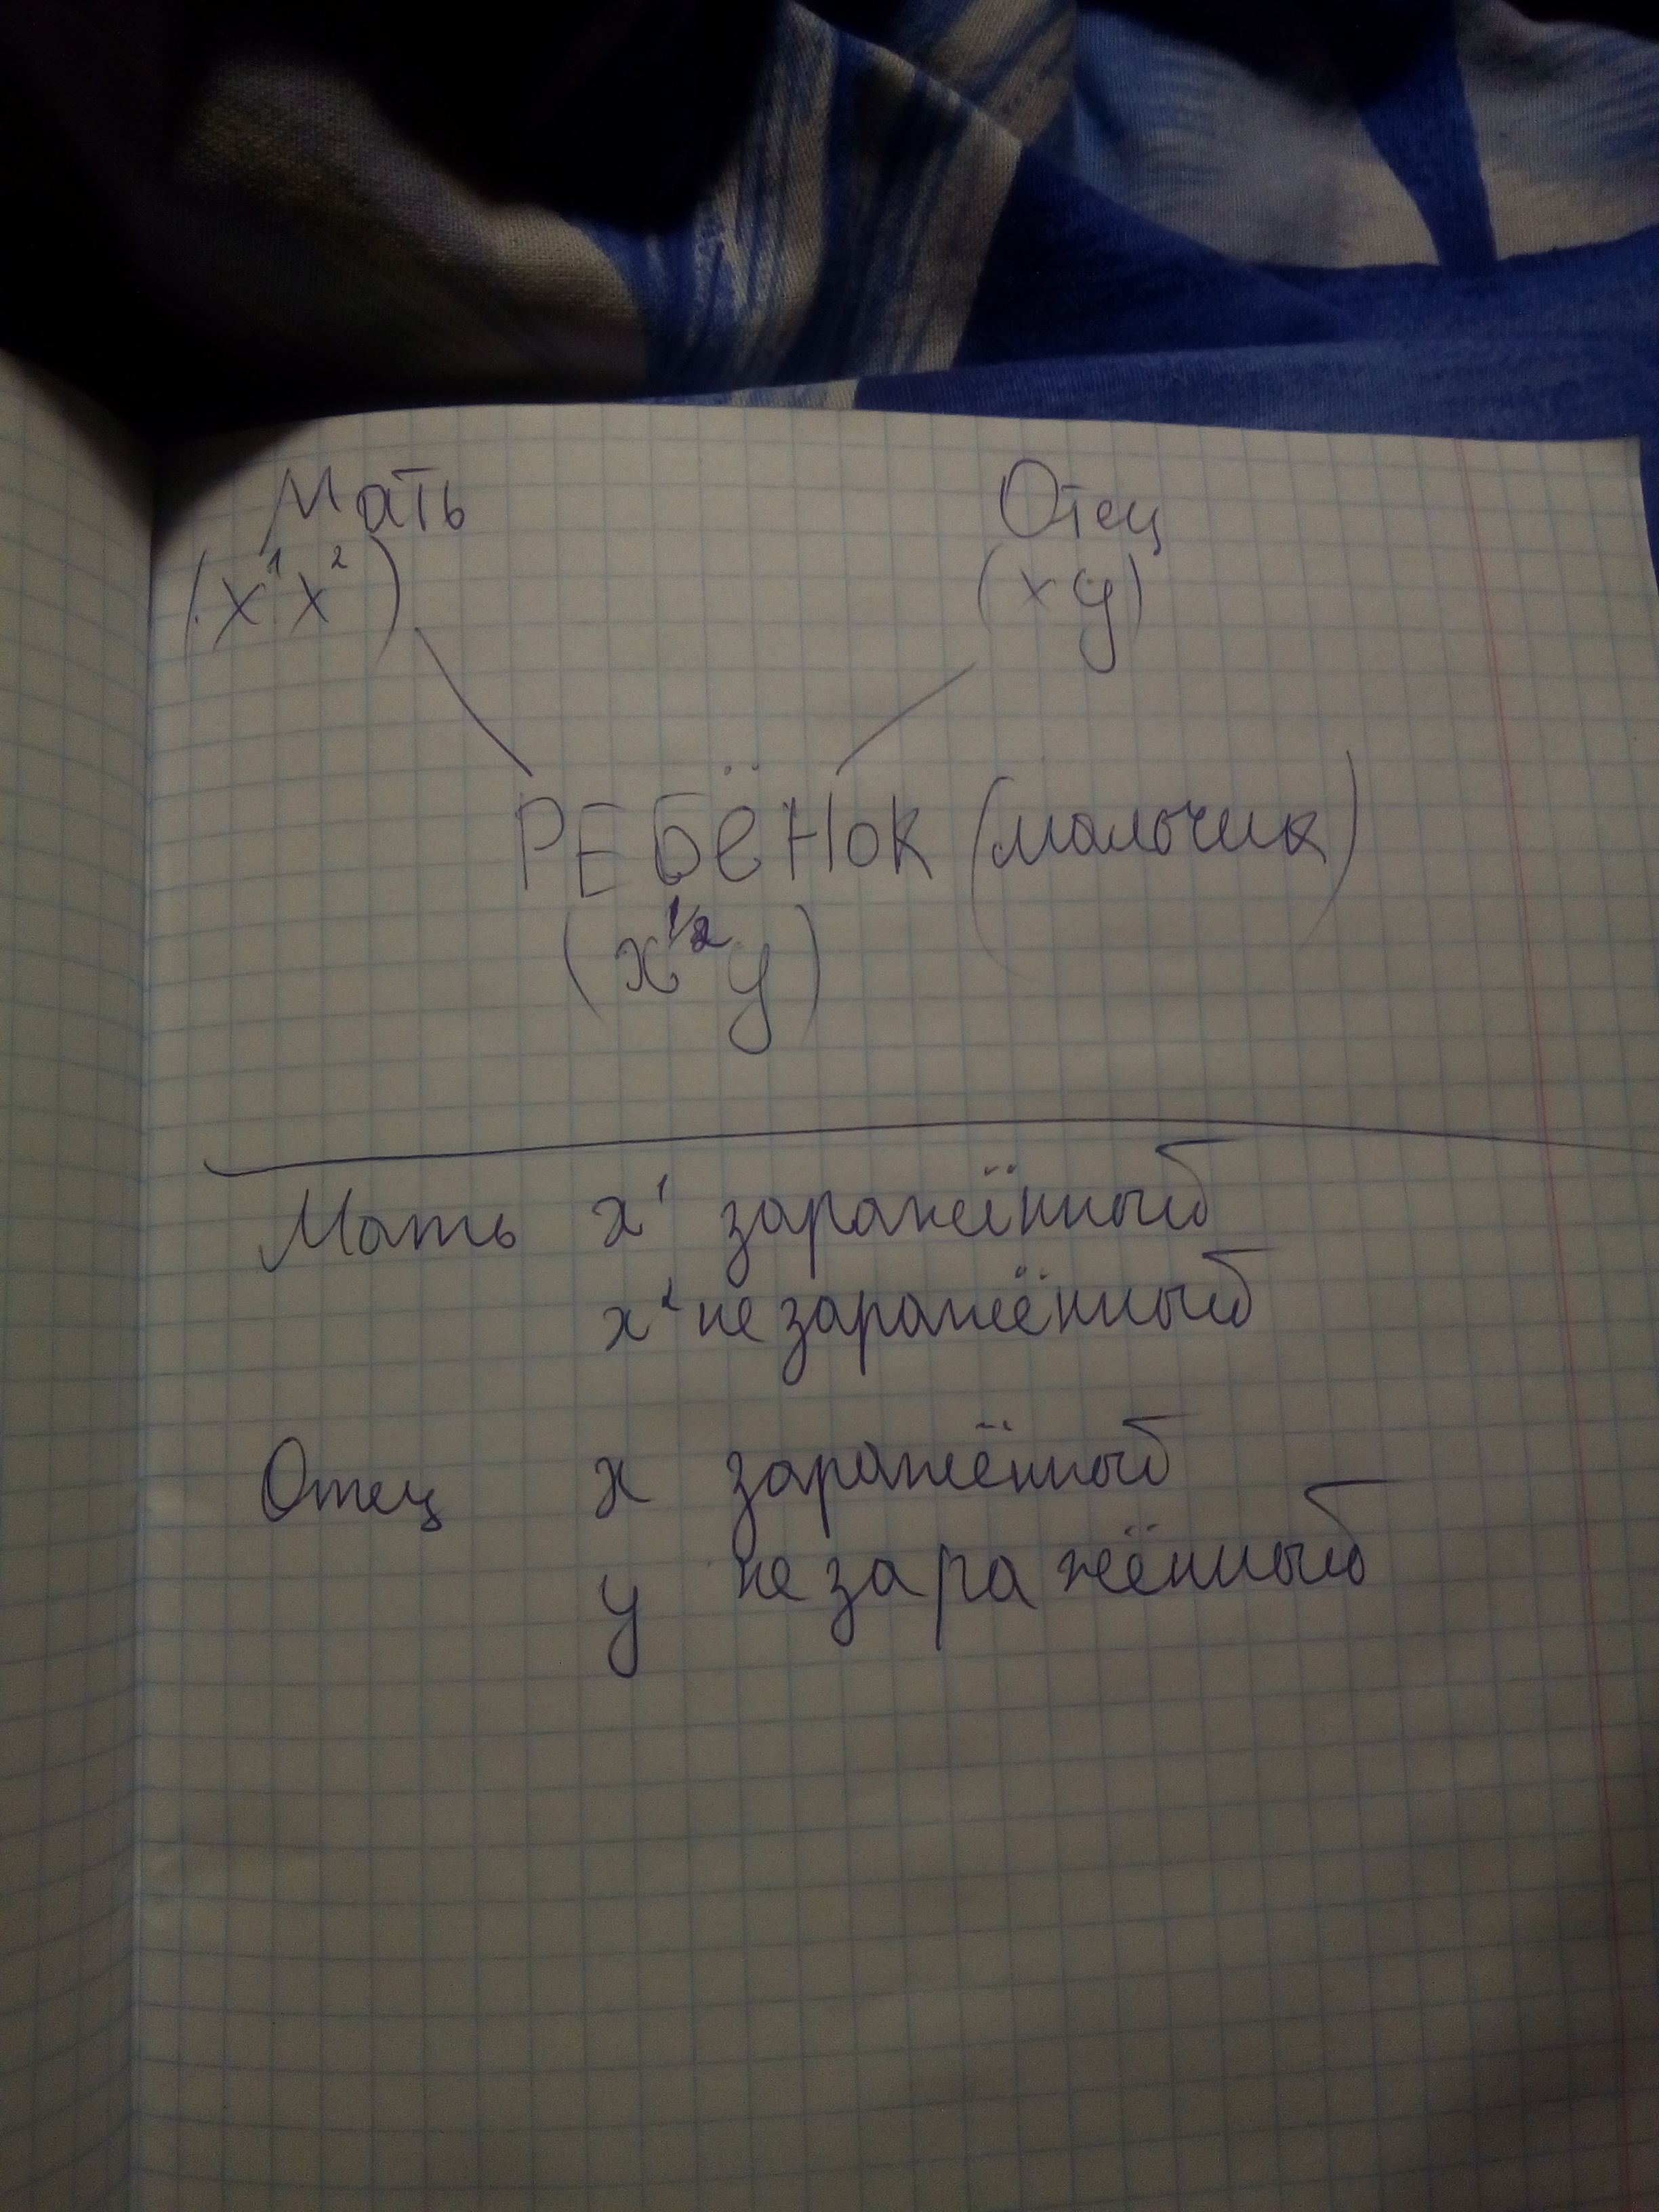 Мать Отец
(X¹X²) (xy)
РЕБЁНОК (мальчик)
(x¹/²y)
Мать x¹ заражённый
x² не заражённый
Отец x заражённый
y не заражённый